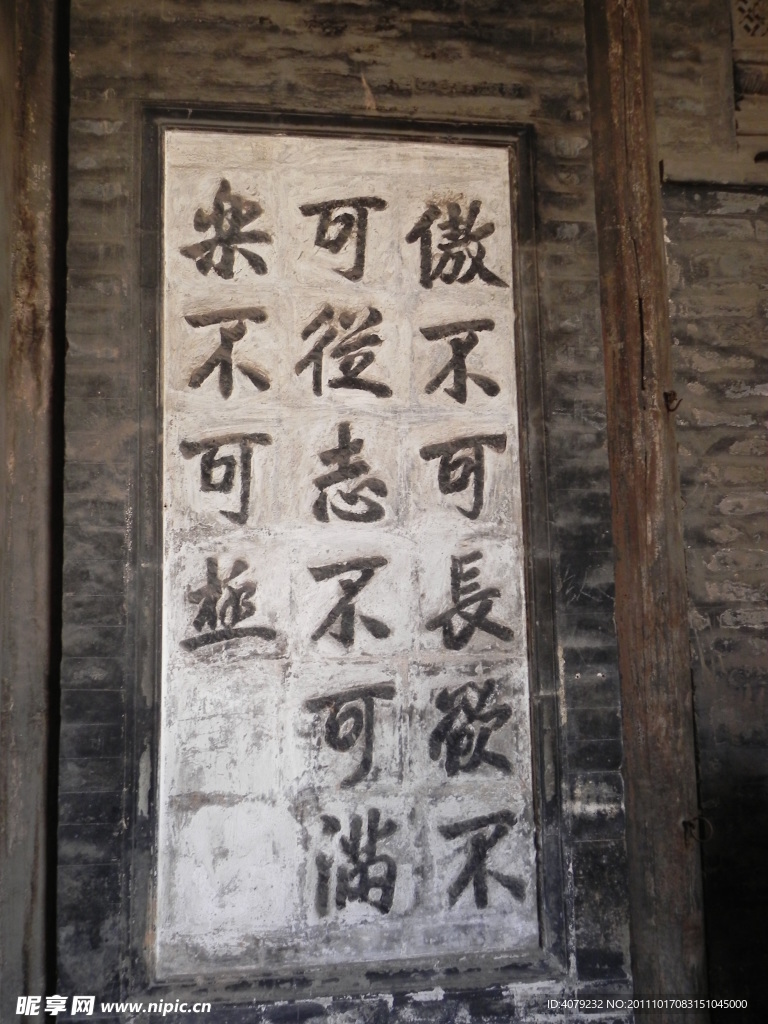 傲不可長欲不
可從志不可滿
樂不可極
昵享网 www.nipic.cn
ID:4079232 NO:20111017083151045000